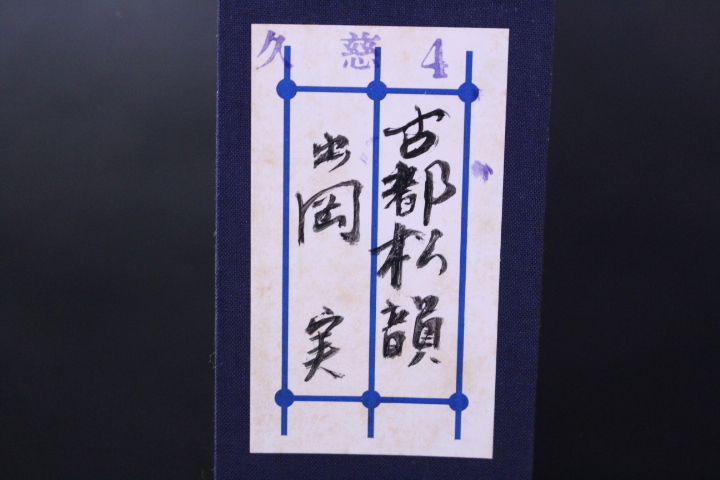 久慈4
古都松韻
出岡 実